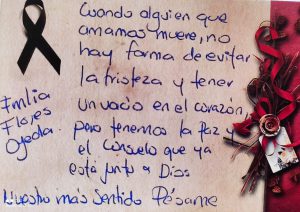 Cuando alguien que
amamos muere, no
hay forma de evitar
la tristeza y tener
un vacio en el corazón
pero tenemos la paz y
el consuelo que ya
está junto a Dios
Nuestro más sentido Pésame
Emilia
Flores
Ojeda.